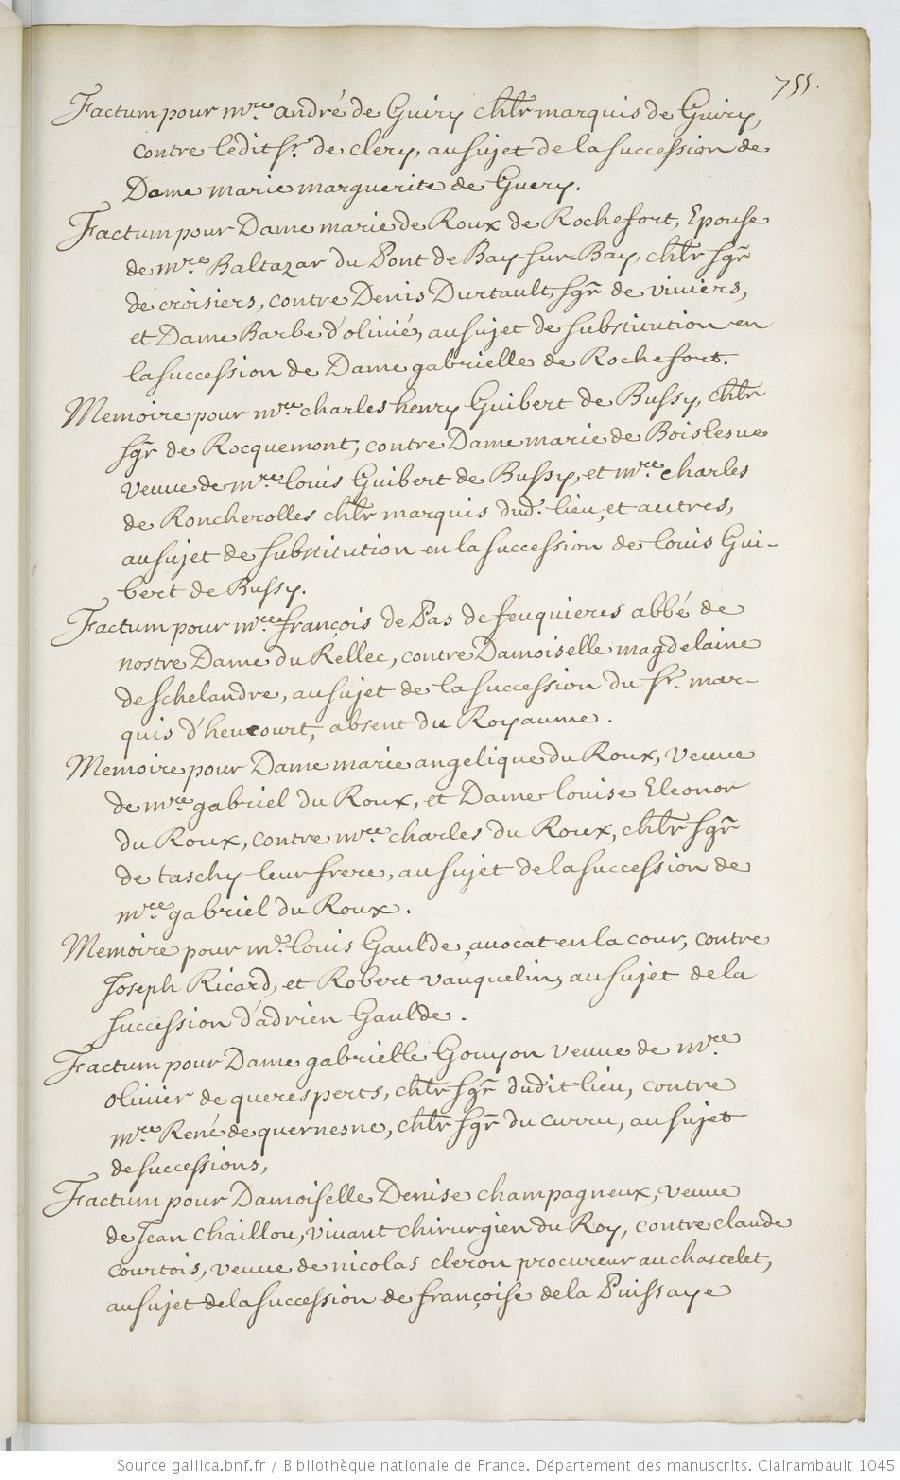 755.
Factum pour mre. andré de Guiry chlr marquis de Guiry,
contre ledit sr. de clery, au sujet de la succession de
Dame marie marguerite de Guery.
Factum pour Dame marie de Roux de Rochefort, Epouse
de mre Baltazar du Pont de Bay sur Bay, chlr sgr
de croisiers, contre Denis Durtault, sgr de viviers,
et Dame Barbe d'olinié, au sujet de substitution en
la succession de Dame gabrielle de Rochefort.
Memoire pour mre charles henry Guibert de Bussy, chlr
sgr de Rocquemont, contre Dame marie de Boislesue
veuue de mre louis Guibert de Bussy, et mre charles
de Roncherolles chlr marquis dud. lieu, et autres,
au sujet de substitution en la succession de louis Gui-
bert de Bussy.
Factum pour mre françois de Pas de feuquieres abbé de
nostre Dame du Rellec, contre Damoiselle magdelaine
de schelandre, au sujet de la succession du sr. mar-
quis d'heucourt, absent du Royaume.
Memoire pour Dame marie angelique du Roux, veuue
de mre gabriel du Roux, et Dame louise Eleonor
du Roux, contre mre charles du Roux, chlr sgr
de taschy leur frere, au sujet de la succession de
mre gabriel du Roux.
Memoire pour me. louis Gaulde, auocat en la cour, contre
Joseph Ricard, et Robert vauquelin, au sujet de la
succession d'adrien Gaulde.
Factum pour Dame gabrielle Gouyon veuue de mre
oliuier de queresperts, chlr sgr dudit lieu, contre
mre René de quernesne, chlr sgr du curru, au sujet
de successions,
Factum pour Damoiselle Denise champagneux, veuue
de Jean Chaillou, viuant chirurgien du Roy, contre claude
courtois, veuue de nicolas cleron procureur au chastelet,
au sujet de la succession de françoise de la Puissaye
Source gallica.bnf.fr / Bibliothèque nationale de France. Département des manuscrits. Clairambault 1045